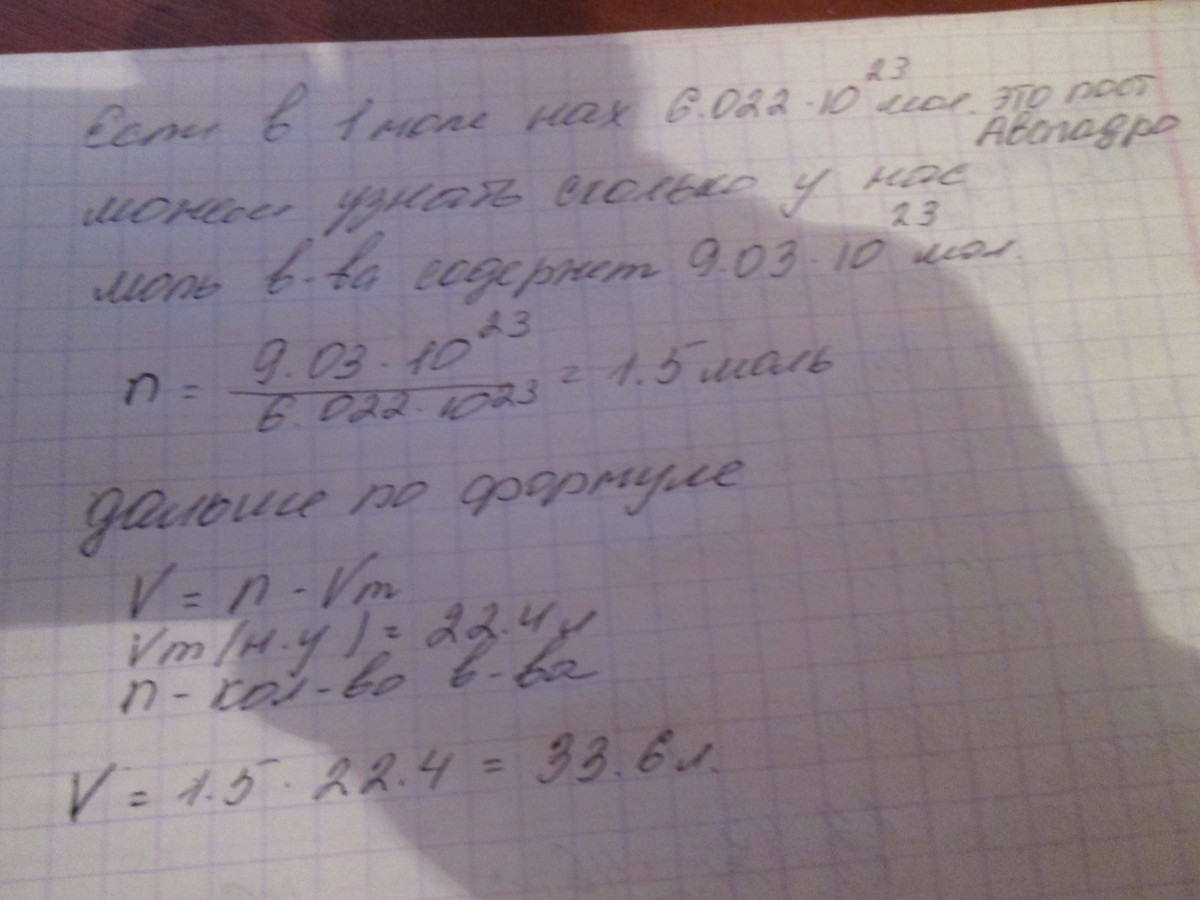 Если в 1 моле нах 6.022 · 10²³ мол. это пост Авогадро
можем узнать сколько у нас
моль в-ва содержит 9.03 · 10²³ мол.
n = 9.03 · 10²³ / 6.022 · 10²³ = 1.5 моль
дальше по формуле
V = n · Vm
Vm (н.у) = 22.4 л
n - кол-во в-ва
V = 1.5 · 22.4 = 33.6 л.